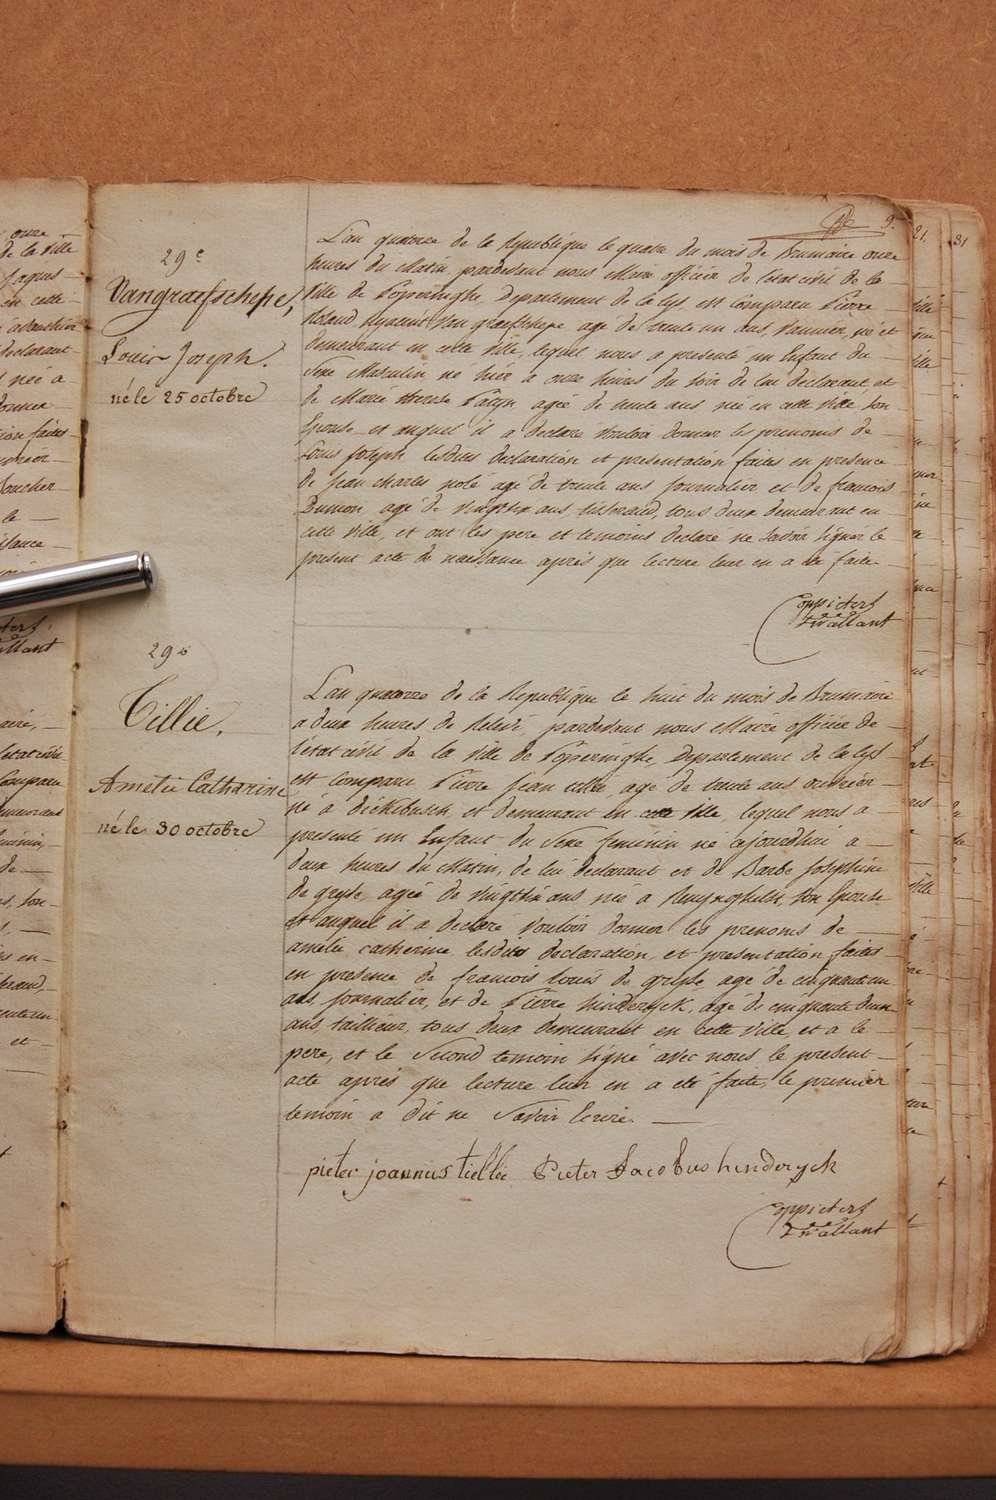 9.
29e
Vangraefschepe,
Louis Joseph.
né le 25 octobre
L'an quatorze de la Republique le quatre du mois de Brumaire onze
heures du Matin, pardevant nous Maire officier de l'etat civil de la
Ville de Poperinghe, Departement de la Lys, est Comparu Pierre
Roland Hyacint Van graefschepe agé de trente un ans, Vannier, né et
demeurant en cette Ville, lequel nous a presenté un Enfant du
Sexe Masculin, né hier a onze heures du soir de lui declarant et
de Marie therese agée de trente ans née en cette Ville, son
Epouse et auquel il a declaré vouloir donner les prenoms de
Louis Joseph lesdites declaration et presentation faites en presence
de Jean charles agé de trente ans journalier et de francois
Dumon agé de vingt six ans tous deux demeurant en
cette Ville, et ont les pere et temoins declaré ne savoir signer le
present acte de naissance après que lecture leur en a été faite
Coppieters
T'wallant
29
Tillie,
Amelie Catharine
né le 30 octobre
L'an quatorze de la Republique le huit du mois de Brumaire
a deux heures de Relevé, pardevant nous Maire officier de
l'état civil de la Ville de Poperinghe, Departement de la Lys
est Comparu Pierre Jean tillie, agé de trente ans ouvrier
né a Dickebusch et demeurant en cette Ville, lequel nous a
presenté un Enfant du Sexe feminin né ajourdhui a
deux heures du Matin, de lui declarant et de Barbe Josephine
de gryse, agée de vingt six ans née a Renynghelst, son Epouse
et auquel il a declaré vouloir donner les prenoms de
amelie catherine lesdites declaration et presentation faites
en presence de francois louis de gryse agé de cinquante un
ans, journalier, et de Pierre hinderyck, agé de cinquante deux
ans, taillieur, tous deux demeurant en cette Ville, et a le
pere, et le Second temoin signé avec nous le present
acte après que lecture leur en a été faite, le premier
temoin a dit ne Savoir Ecrire.
pieter joannis tiellie Pieter Jacobus hinderyck
Coppieters
T'wallant